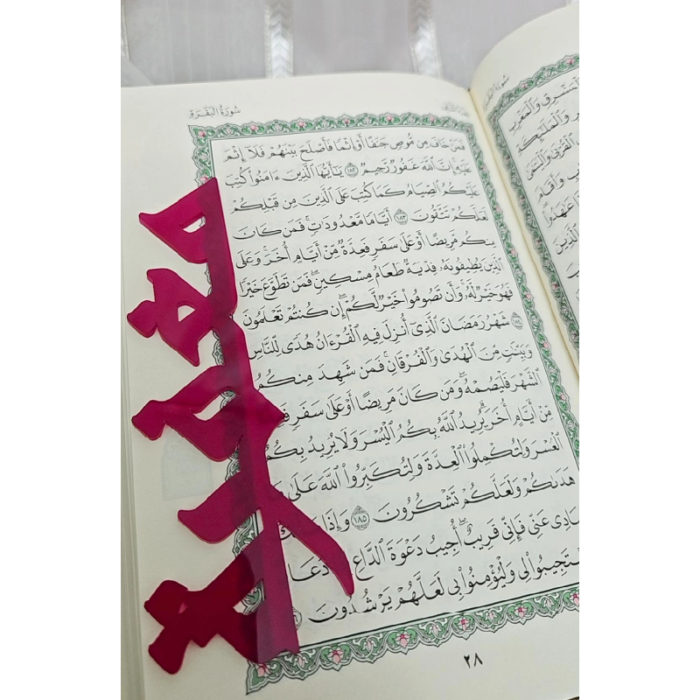 سُورَةُ البَقَرَةِ
فَمَنْ خَافَ مِن مُّوصٍ جَنَفًا أَوْ إِثْمًا فَأَصْلَحَ بَيْنَهُمْ فَلَآ إِثْمَ
عَلَيْهِ إِنَّ ٱللَّهَ غَفُورٌ رَّحِيمٌ ١٨٢ يَٰٓأَيُّهَا ٱلَّذِينَ ءَامَنُوا۟ كُتِبَ
عَلَيْكُمُ ٱلصِّيَامُ كَمَا كُتِبَ عَلَى ٱلَّذِينَ مِن قَبْلِكُمْ
لَعَلَّكُمْ تَتَّقُونَ ١٨٣ أَيَّامًا مَّعْدُودَٰتٍ فَمَن كَانَ
مِنكُم مَّرِيضًا أَوْ عَلَىٰ سَفَرٍ فَعِدَّةٌ مِّنْ أَيَّامٍ أُخَرَ وَعَلَى
ٱلَّذِينَ يُطِيقُونَهُۥ فِدْيَةٌ طَعَامُ مِسْكِينٍ فَمَن تَطَوَّعَ خَيْرًا
فَهُوَ خَيْرٌ لَّهُۥ وَأَن تَصُومُوا۟ خَيْرٌ لَّكُمْ إِن كُنتُمْ تَعْلَمُونَ
١٨٤ شَهْرُ رَمَضَانَ ٱلَّذِىٓ أُنزِلَ فِيهِ ٱلْقُرْءَانُ هُدًى لِّلنَّاسِ
وَبَيِّنَٰتٍ مِّنَ ٱلْهُدَىٰ وَٱلْفُرْقَانِ فَمَن شَهِدَ مِنكُمُ
ٱلشَّهْرَ فَلْيَصُمْهُ وَمَن كَانَ مَرِيضًا أَوْ عَلَىٰ سَفَرٍ
مِّنْ أَيَّامٍ أُخَرَ يُرِيدُ ٱللَّهُ بِكُمُ ٱلْيُسْرَ وَلَا يُرِيدُ بِكُمُ
ٱلْعُسْرَ وَلِتُكْمِلُوا۟ ٱلْعِدَّةَ وَلِتُكَبِّرُوا۟ ٱللَّهَ عَلَىٰ
هَدَىٰكُمْ وَلَعَلَّكُمْ تَشْكُرُونَ ١٨٥ وَإِذَا
عَنِّى فَإِنِّى قَرِيبٌ أُجِيبُ دَعْوَةَ ٱلدَّاعِ دَعَانِ
لِى وَلْيُؤْمِنُوا۟ بِى لَعَلَّهُمْ يَرْشُدُونَ
٢٨